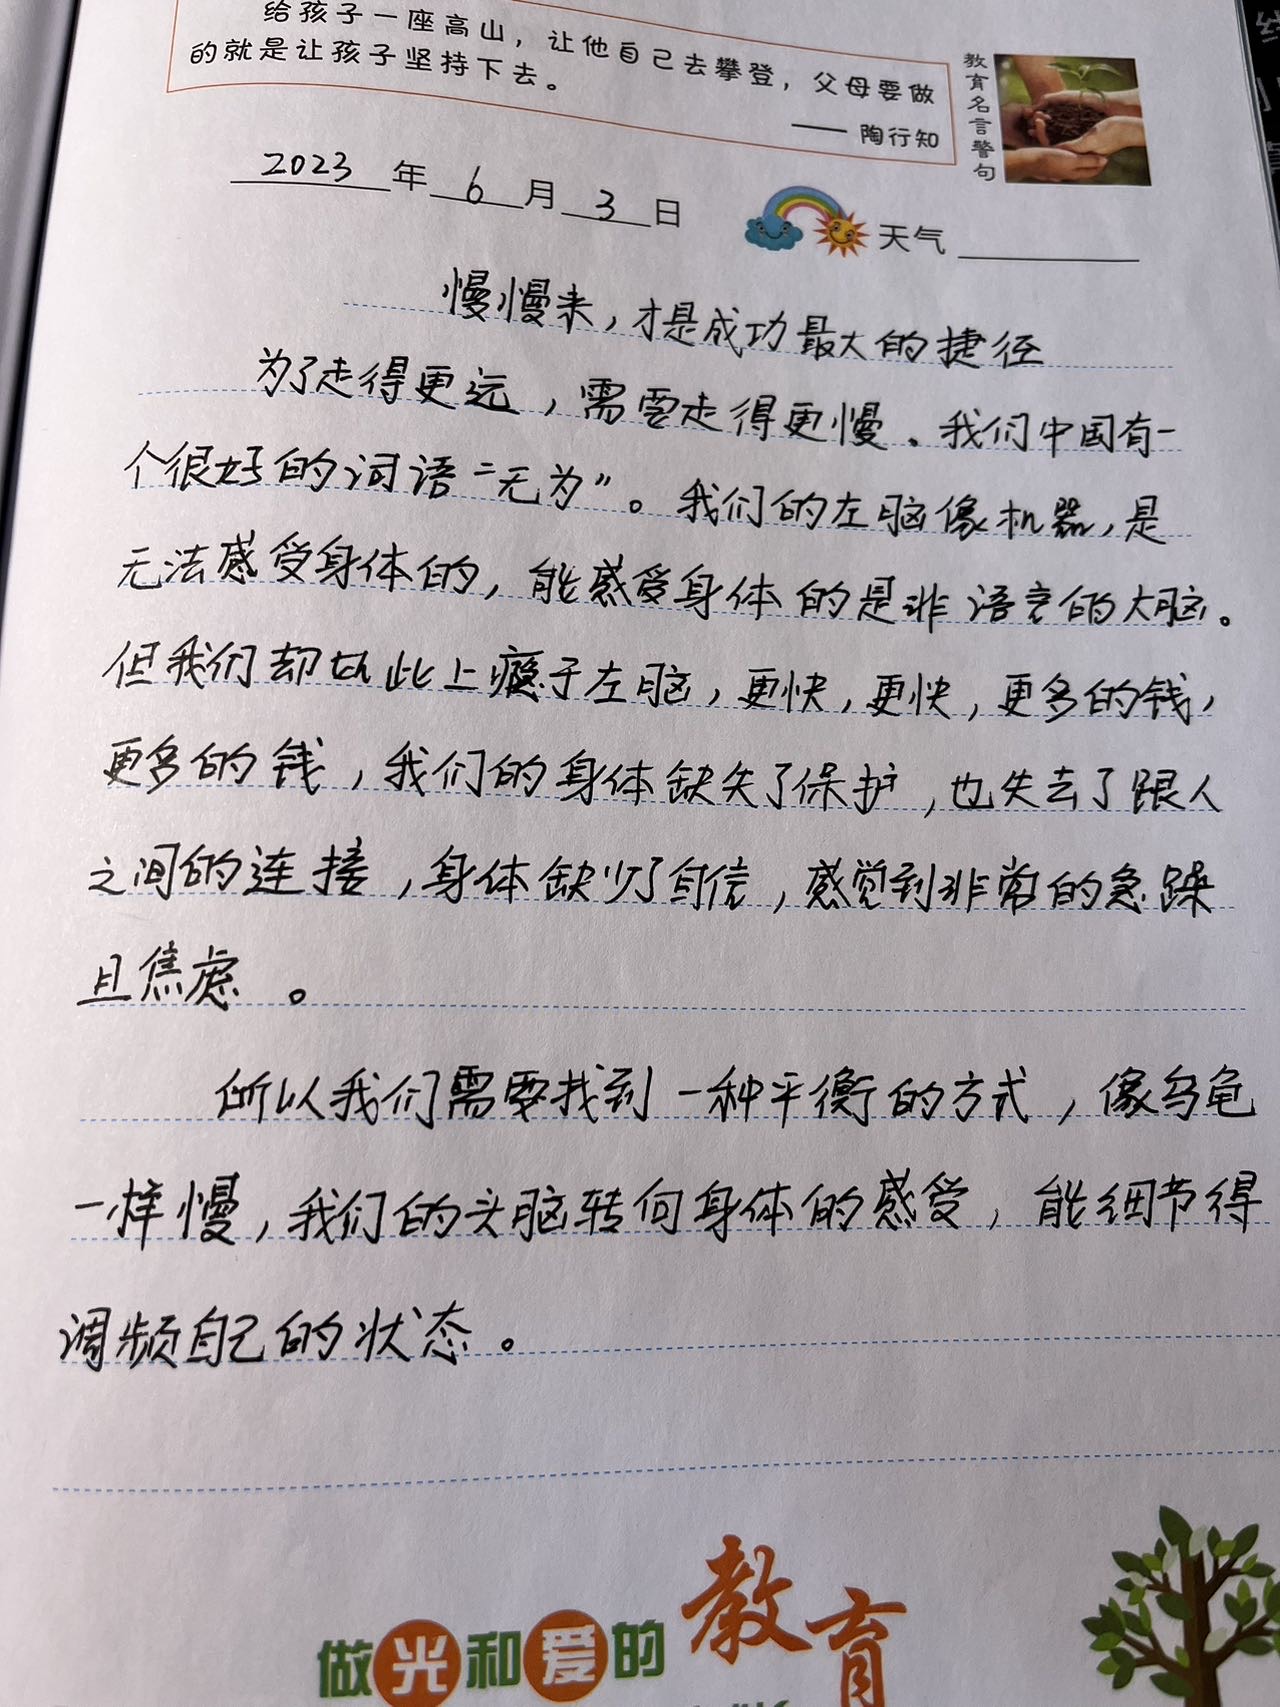 给孩子一座高山，让他自己去攀登，父母要做
的就是让孩子坚持下去。
—— 陶行知
教育名言警句
2023年6月3日 天气
慢慢来，才是成功最大的捷径
为了走得更远，需要走得更慢。我们中国有一
个很好的词语“无为”。我们的左脑像机器，是
无法感受身体的，能感受身体的是非语言的大脑。
但我们却如此上瘾于左脑，更快，更快，更多的钱，
更多的钱，我们的身体缺失了保护，也失去了跟人
之间的连接，身体缺少了自信，感觉到非常的急躁
且焦虑。
所以我们需要找到一种平衡的方式，像乌龟
一样慢，我们的头脑转向身体的感受，能细节得
调频自己的状态。
做光和爱的教育